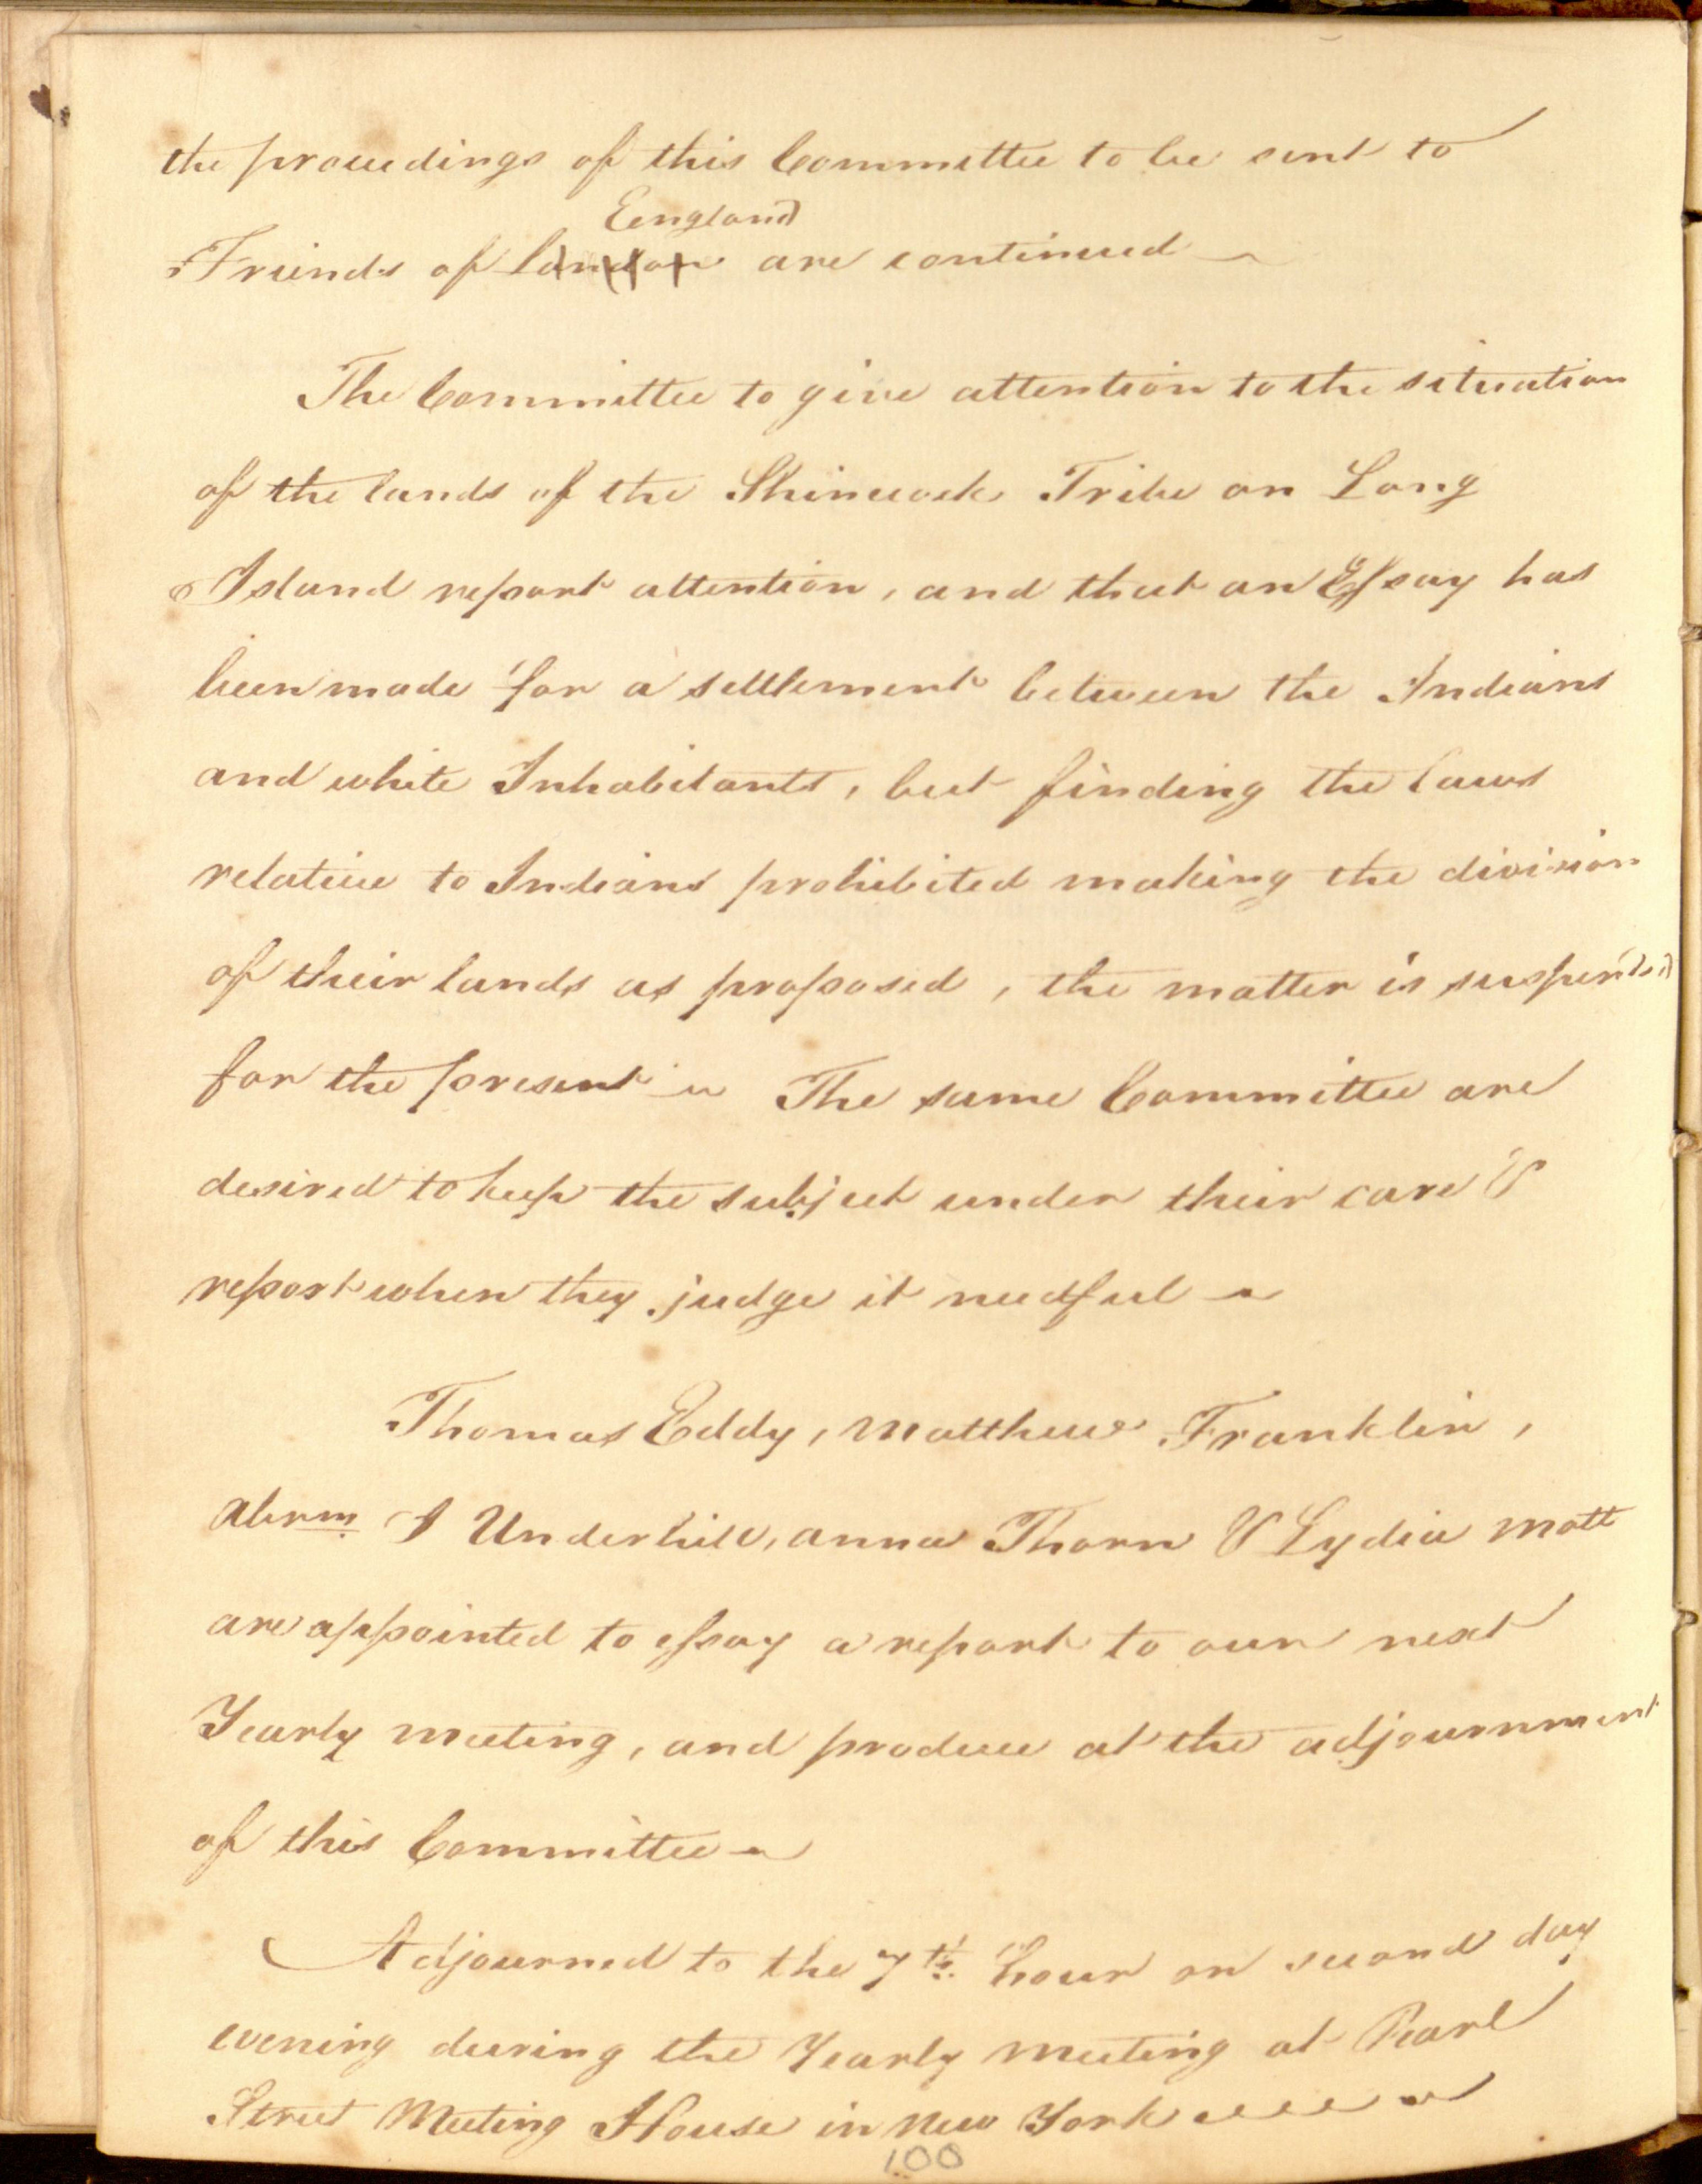 the proceedings of this Committee to be sent to
Eengland
Friends of London are continued
The Committee to give attention to the situation
of the lands of the Shinecock Tribe on Long
Island report attention, and that an Essay has
been made for a settlement between the Indians
and white Inhabitants, but finding the laws
relative to Indians prohibited making the division
of their lands as proposed, the matter is suspended
for the present — The same Committee are
desired to keep the subject under their care &
report when they judge it needful —
Thomas Eddy, Matthew Franklin,
Abrm I Underhill, Anna Thorn & Lydia Mott
are appointed to essay a report to our next
Yearly Meeting, and produce at the adjournment
of this Committee —
Adjourned to the 7th. hour on second day
evening during the Yearly Meeting at Pearl
Street Meeting House in New York
100